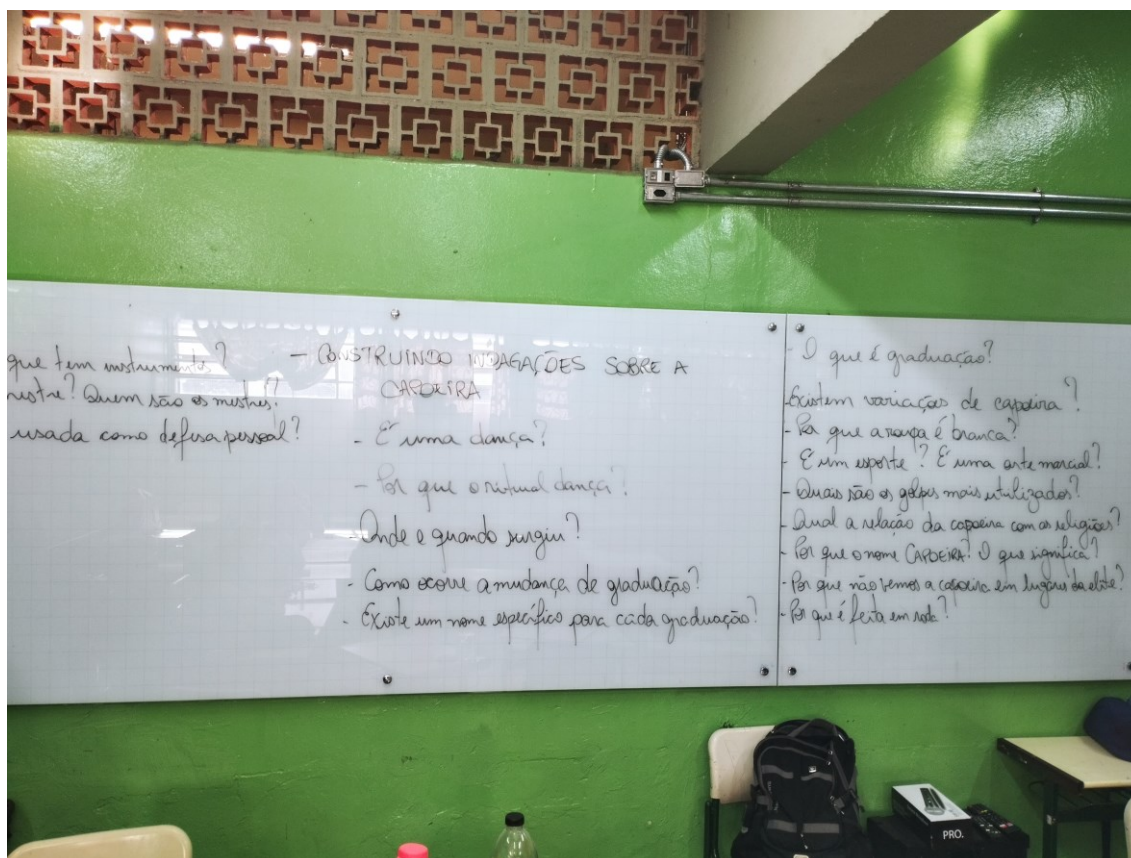 que tem instrumentos?
mestre? Quem são os mestres?
usada como defesa pessoal?
- CONSTRUINDO INDAGAÇÕES SOBRE A
CAPOEIRA
- É uma dança?
- Por que o ritual dança?
- Onde e quando surgiu?
- Como ocorre a mudança de graduação?
- Existe um nome específico para cada graduação?
- O que é graduação?
- Existem variações de capoeira?
- Por que a roupa é branca?
- É um esporte? É uma arte marcial?
- Quais são os golpes mais utilizados?
- Qual a relação da capoeira com as religiões?
- Por que o nome CAPOEIRA? O que significa?
- Por que não vemos a capoeira em lugares da elite?
- Por que é feita em roda?
PRO.